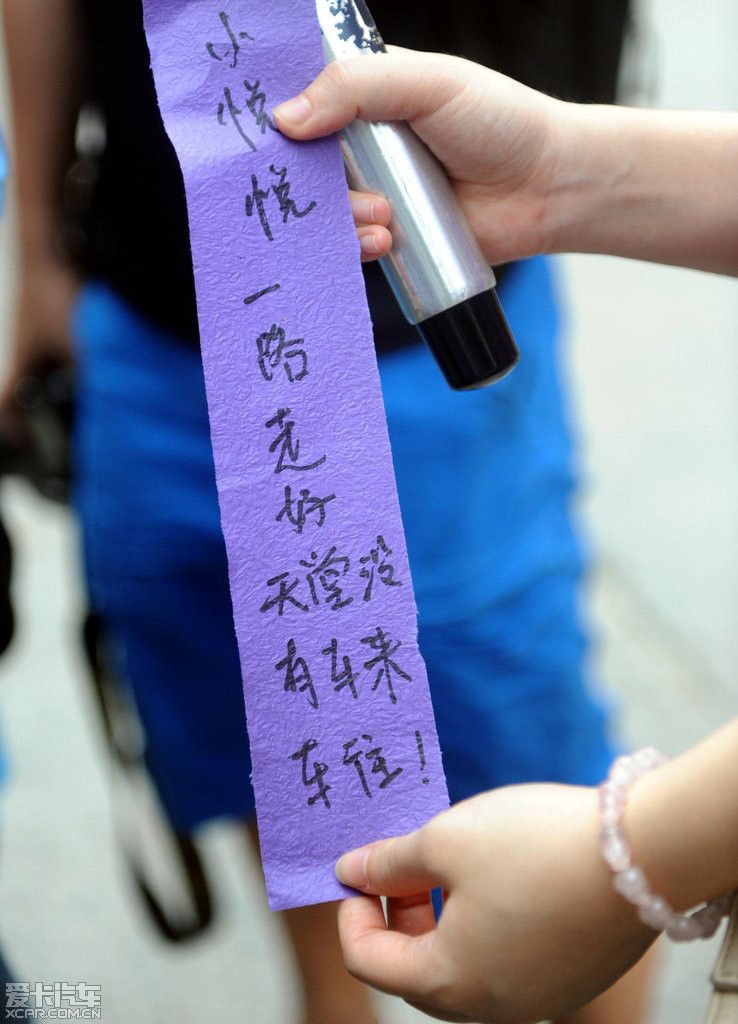 小悦悦
一路走好
天堂没
有车来
车往！
爱卡汽车
XCAR.COM.CN